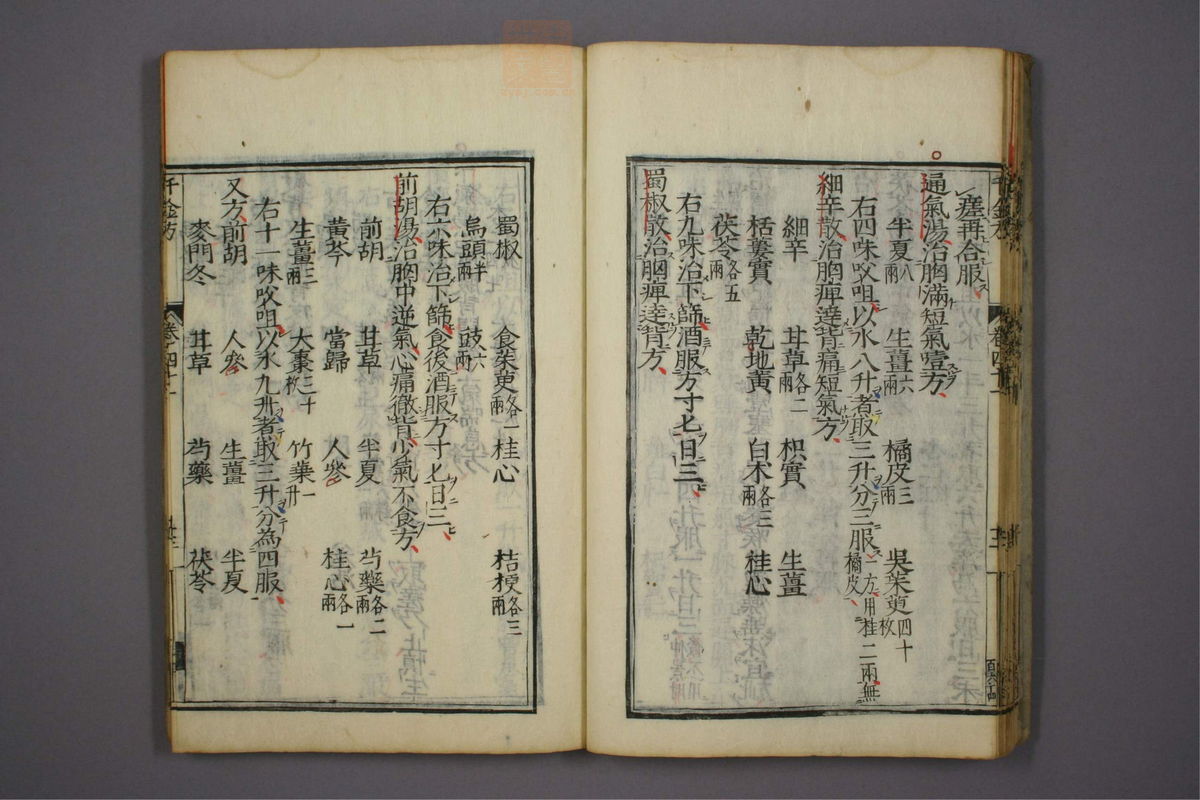 塞再合服
通氣湯治胸滿短氣噎方
半夏八兩 生薑六兩 橘皮三兩 吳茱萸四十枚
右四味㕮咀以水八升煮取三升分三服一方用桂二兩無橘皮
細辛散治胸痺達背痛短氣方
細辛 甘草各二兩 枳實 生薑
栝蔞實 乾地黃 白朮各三兩 桂心
茯苓各五兩
右九味治下篩酒服方寸匕日三
蜀椒散治胸痺達背方
蜀椒 食茱萸各一兩 桂心 桔梗各三兩
烏頭半兩 豉六兩
右六味治下篩食後酒服方寸匕日三
前胡湯治胸中逆氣心痛徹背少氣不食方
前胡 甘草 半夏 芍藥各二兩
黃芩 當歸 人參 桂心各一兩
生薑三兩 大棗三十枚 竹葉一升
右十一味㕮咀以水九升煮取三升分為四服
又方前胡 人參 生薑 半夏
麥門冬 甘草 芍藥 茯苓
千金方 卷四十二